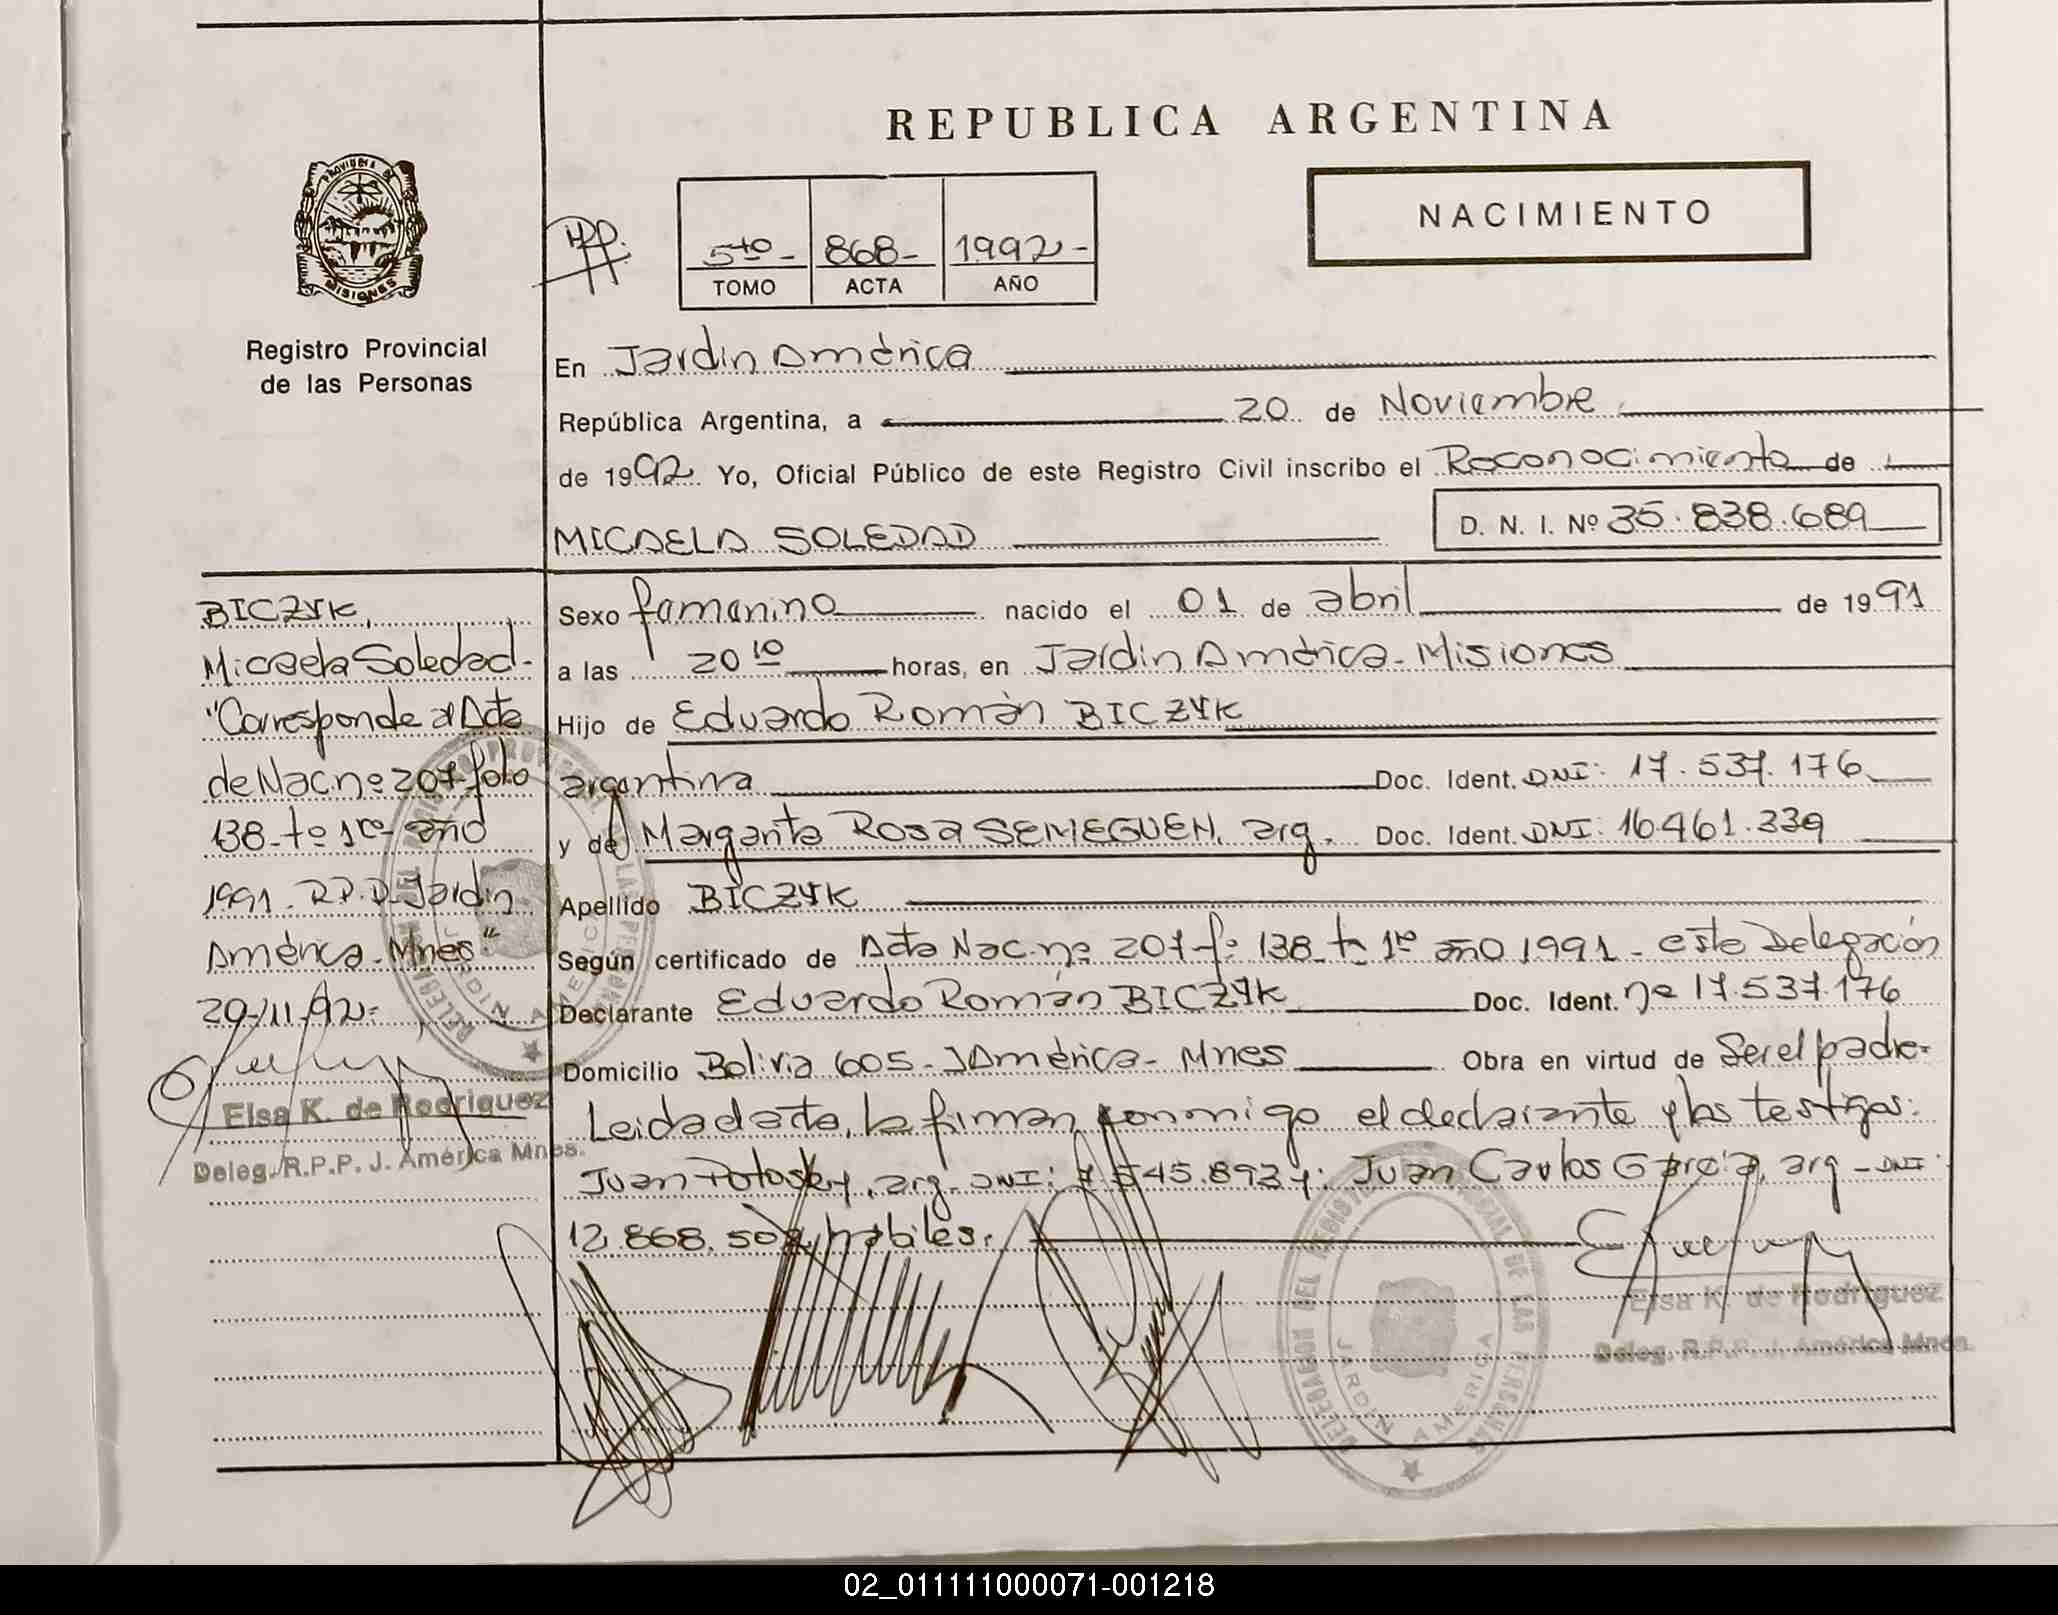 REPUBLICA ARGENTINA
NACIMIENTO
PROVINCIA DE
MISIONES
Registro Provincial
de las Personas
5to- 868- 1992-
TOMO ACTA AÑO
En Jardin América
República Argentina, a 20 de Noviembre
de 1992 Yo, Oficial Público de este Registro Civil inscribo el Reconocimiento de
MICAELA SOLEDAD
D. N. I. Nº 35.838.689
BICZYK,
Micaela Soledad-
"Corresponde al Acta
de Nac nº 207-folio
138-tº 1ro- año
1991. R.P.P. Jardin
América-Mnes."
20/11/92-
Elsa K. de Rodriguez
Deleg. R.P.P. J. América Mnes.
Sexo femenino nacido el 01 de abril de 1991
a las 20 10 horas, en Jardin América-Misiones
Hijo de Eduardo Román BICZYK
argentina Doc. Ident. DNI: 17.537.176
y de Margarita Rosa SEMEGUEN, arg. Doc. Ident. DNI: 16.461.339
Apellido BICZYK
Según certificado de Acta Nac. nº 207-fº 138 tº 1ro año 1991- esta Delegación
Declarante Eduardo Román BICZYK Doc. Ident. nº 17.537.176
Domicilio Bolivia 605-J América-Mnes Obra en virtud de Ser el padre-
Leida el acta, la firman conmigo el declarante y los testigos:
Juan Potosky, arg. DNI: 7.545.893 y: Juan Carlos García, arg-DNI:
12.868.502, habiles.
Elsa K. de Rodriguez
Deleg. R.P.P. J. América Mnes.
DELEGACION DEL REGISTRO PROVINCIAL DE LAS PERSONAS
JARDIN AMERICA
02_011111000071-001218